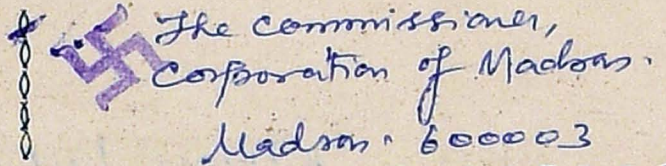 The Commissioner,
Corporation of Madras.
Madras. 600003